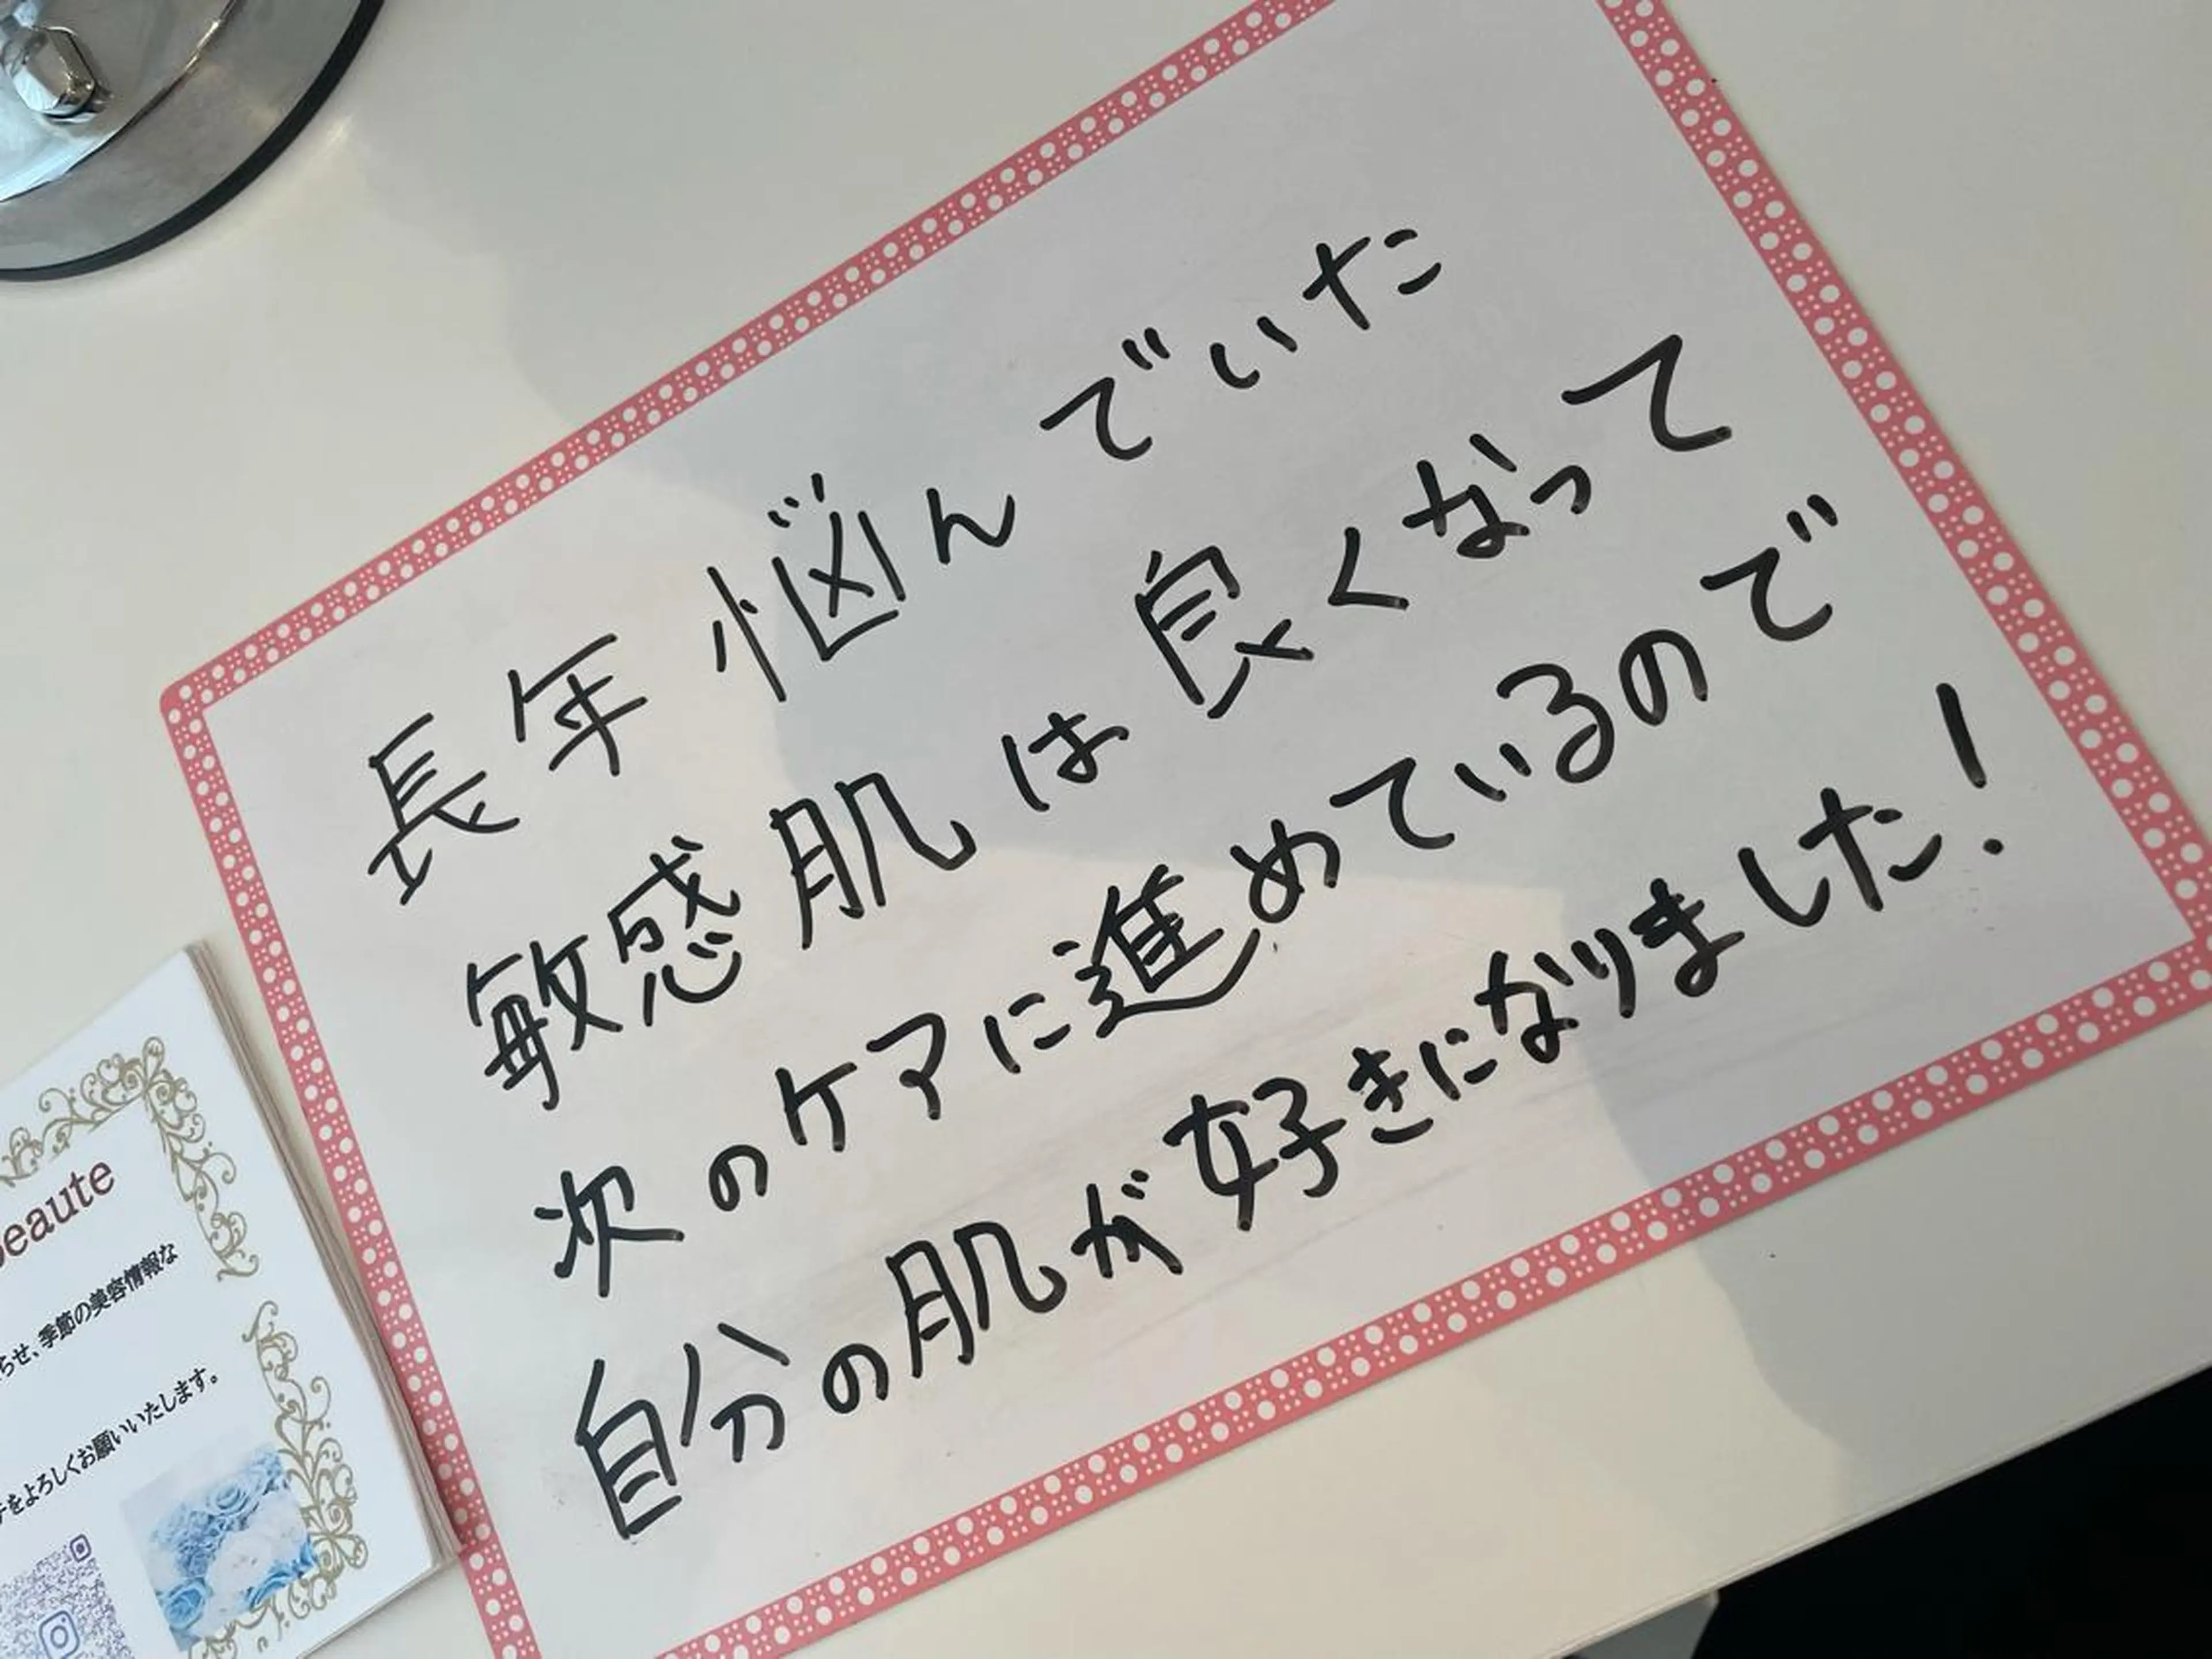 長年悩んでいた
敏感肌は良くなって
次のケアに進めているので
自分の肌が好きになりました!
beaute
らせ、季節の美容情報な
をよろしくお願いいたします。